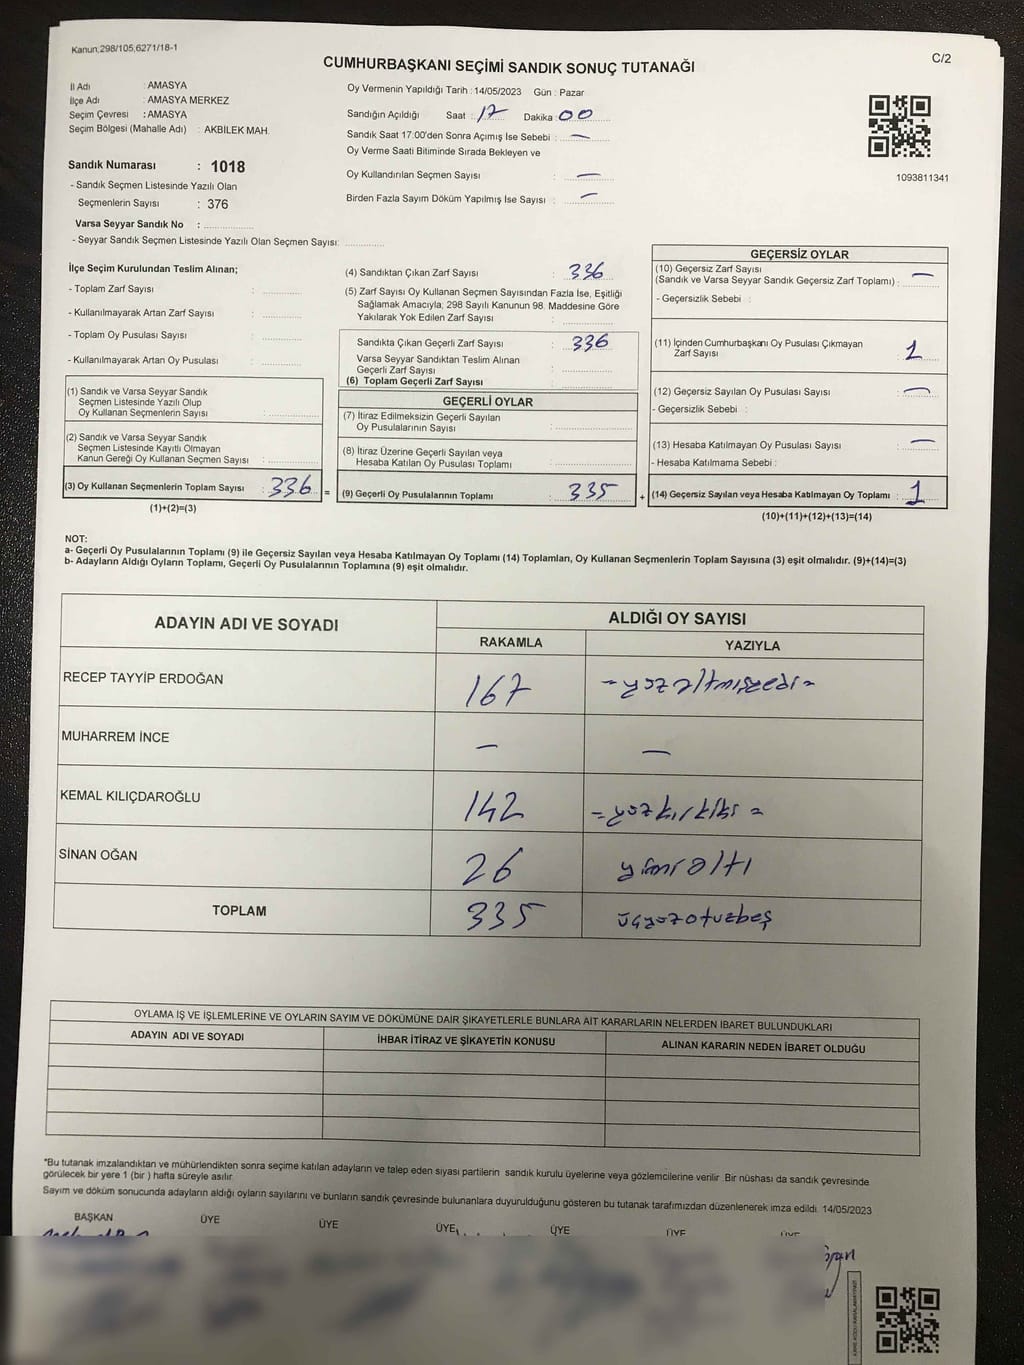 Kanun;298/105,6271/18-1
C/2
CUMHURBAŞKANI SEÇİMİ SANDIK SONUÇ TUTANAĞI
İl Adı : AMASYA
İlçe Adı : AMASYA MERKEZ
Seçim Çevresi : AMASYA
Seçim Bölgesi (Mahalle Adı) : AKBİLEK MAH.
Sandık Numarası : 1018
- Sandık Seçmen Listesinde Yazılı Olan
Seçmenlerin Sayısı : 376
Varsa Seyyar Sandık No :
- Seyyar Sandık Seçmen Listesinde Yazılı Olan Seçmen Sayısı:
Oy Vermenin Yapıldığı Tarih : 14/05/2023 Gün : Pazar
Sandığın Açıldığı Saat : 17 Dakika : 00
Sandık Saat 17:00'den Sonra Açımış İse Sebebi : —
Oy Verme Saati Bitiminde Sırada Bekleyen ve
Oy Kullandırılan Seçmen Sayısı : —
Birden Fazla Sayım Döküm Yapılmış İse Sayısı : —
1093811341
İlçe Seçim Kurulundan Teslim Alınan;
- Toplam Zarf Sayısı :
- Kullanılmayarak Artan Zarf Sayısı :
- Toplam Oy Pusulası Sayısı :
- Kullanılmayarak Artan Oy Pusulası :
(1) Sandık ve Varsa Seyyar Sandık
Seçmen Listesinde Yazılı Olup
Oy Kullanan Seçmenlerin Sayısı :
(2) Sandık ve Varsa Seyyar Sandık
Seçmen Listesinde Kayıtlı Olmayan
Kanun Gereği Oy Kullanan Seçmen Sayısı :
(3) Oy Kullanan Seçmenlerin Toplam Sayısı : 336 =
(1)+(2)=(3)
(4) Sandıktan Çıkan Zarf Sayısı : 336
(5) Zarf Sayısı Oy Kullanan Seçmen Sayısından Fazla İse, Eşitliği
Sağlamak Amacıyla; 298 Sayılı Kanunun 98. Maddesine Göre
Yakılarak Yok Edilen Zarf Sayısı :
Sandıkta Çıkan Geçerli Zarf Sayısı : 336
Varsa Seyyar Sandıktan Teslim Alınan
Geçerli Zarf Sayısı :
(6) Toplam Geçerli Zarf Sayısı :
GEÇERLİ OYLAR
(7) İtiraz Edilmeksizin Geçerli Sayılan
Oy Pusulalarının Sayısı :
(8) İtiraz Üzerine Geçerli Sayılan veya
Hesaba Katılan Oy Pusulası Toplamı :
(9) Geçerli Oy Pusulalarının Toplamı : 335 +
GEÇERSİZ OYLAR
(10) Geçersiz Zarf Sayısı
(Sandık ve Varsa Seyyar Sandık Geçersiz Zarf Toplamı) : —
- Geçersizlik Sebebi :
(11) İçinden Cumhurbaşkanı Oy Pusulası Çıkmayan
Zarf Sayısı : 1
(12) Geçersiz Sayılan Oy Pusulası Sayısı : —
- Geçersizlik Sebebi :
(13) Hesaba Katılmayan Oy Pusulası Sayısı : —
- Hesaba Katılmama Sebebi :
(14) Geçersiz Sayılan veya Hesaba Katılmayan Oy Toplamı : 1
(10)+(11)+(12)+(13)=(14)
NOT:
a- Geçerli Oy Pusulalarının Toplamı (9) ile Geçersiz Sayılan veya Hesaba Katılmayan Oy Toplamı (14) Toplamları, Oy Kullanan Seçmenlerin Toplam Sayısına (3) eşit olmalıdır. (9)+(14)=(3)
b- Adayların Aldığı Oyların Toplamı, Geçerli Oy Pusulalarının Toplamına (9) eşit olmalıdır.
ADAYIN ADI VE SOYADI ALDIĞI OY SAYISI
RAKAMLA YAZIYLA
RECEP TAYYİP ERDOĞAN 167
MUHARREM İNCE — —
KEMAL KILIÇDAROĞLU 142 = yüzkırkiki =
SİNAN OĞAN 26 yirmialtı
TOPLAM 335 üçyüzotuzbeş
OYLAMA İŞ ve İŞLEMLERİNE VE OYLARIN SAYIM VE DÖKÜMÜNE DAİR ŞİKAYETLERLE BUNLARA AİT KARARLARIN NELERDEN İBARET BULUNDUKLARI
ADAYIN ADI VE SOYADI İHBAR İTİRAZ VE ŞİKAYETİN KONUSU ALINAN KARARIN NEDEN İBARET OLDUĞU
*Bu tutanak imzalandıktan ve mühürlendikten sonra seçime katılan adayların ve talep eden siyasi partilerin sandık kurulu üyelerine veya gözlemcilerine verilir. Bir nüshası da sandık çevresinde
görülecek bir yere 1 (bir ) hafta süreyle asılır.
Sayım ve döküm sonucunda adayların aldığı oyların sayılarını ve bunların sandık çevresinde bulunanlara duyurulduğunu gösteren bu tutanak tarafımızdan düzenlenerek imza edildi. 14/05/2023
BAŞKAN ÜYE ÜYE ÜYE ÜYE ÜYE ÜYE